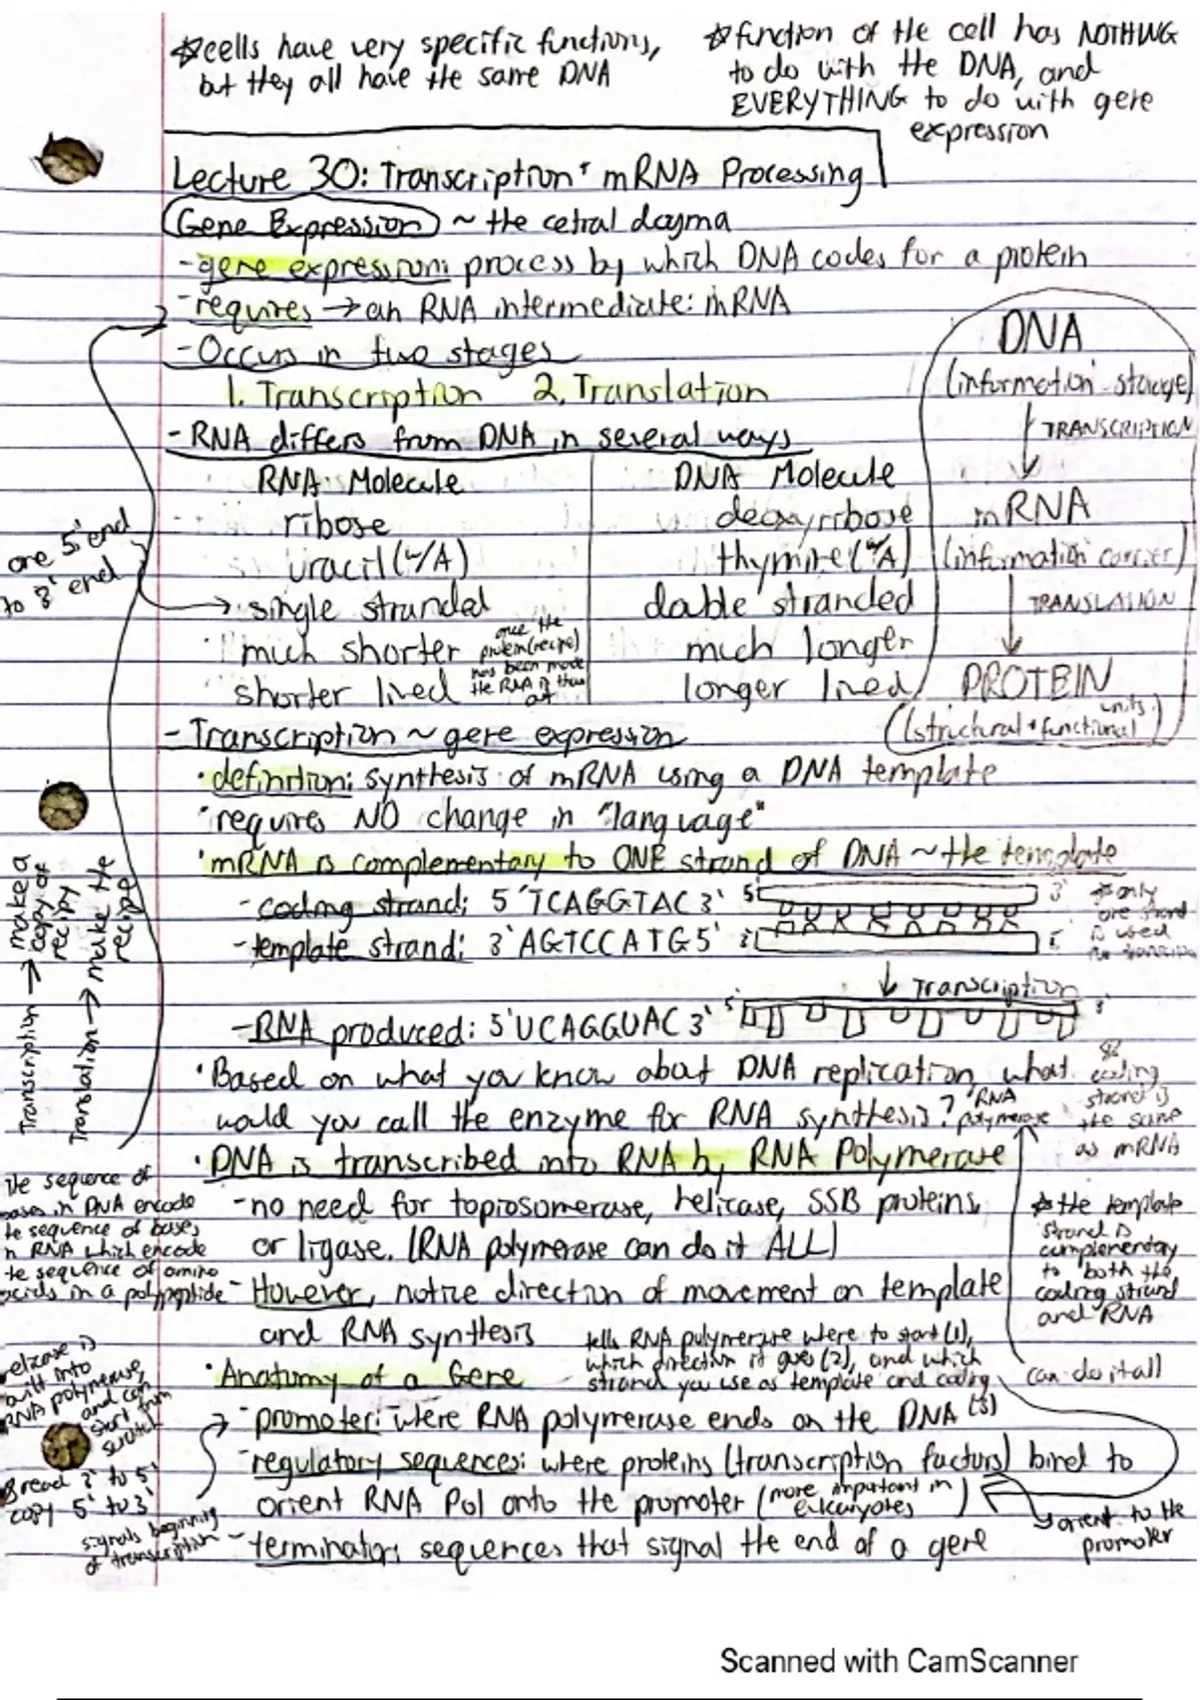 ☆cells have very specific functions,
but they all have the same DNA
☆function of the cell has NOTHING
to do with the DNA, and
EVERYTHING to do with gene
expression
Lecture 30: Transcription + mRNA Processing
Gene Expression ~ the cetral dogma
- gene expression: process by which DNA codes for a protein
- requires → an RNA intermediate: mRNA
- Occurs in two stages
1. Transcription 2. Translation
- RNA differs from DNA in several ways
RNA Molecule
ribose
uracil (w/A)
single stranded
much shorter
shorter lived
once the
protein (recipe)
has been made
the RNA is thrown
out
DNA Molecule
deoxyribose
thymine (w/A)
double stranded
much longer
longer lived
DNA
(information storage)
↓ TRANSCRIPTION
mRNA
(information carrier)
↓ TRANSLATION
PROTEIN
(structural + functional units)
one 5' end
to 3' end
- Transcription ~ gene expression
• definition: synthesis of mRNA using a DNA template
• requires NO change in "language"
• mRNA is complementary to ONE strand of DNA ~ the template
- coding strand: 5'TCAGGTAC3' 5' 3'
- template strand: 3'AGTCCATG5' 3' 5'
☆only
one strand
is used
↓ Transcription
- RNA produced: 5'UCAGGUAC3' 5' 3'
Transcription → make a
copy of
recipy
Translation → make the
recipe
• Based on what you know about DNA replication, what
would you call the enzyme for RNA synthesis? RNA
polymerase
coding
strand is
the same
as mRNA
• DNA is transcribed into RNA by RNA Polymerase
- no need for topiosomerase, helicase, SSB proteins,
or ligase. (RNA polymerase can do it ALL)
- However, notice direction of movement on template
and RNA synthesis
the sequence of
bases in DNA encode
the sequence of bases
in RNA which encode
the sequence of amino
acids in a polypeptide
☆the template
strand is
complementary
to both the
coding strand
and RNA
can do it all
tells RNA polymerase where to start (1),
which direction it goes (2), and which
strand you use as template and coding
(3)
• Anatomy of a Gene
- promoter: where RNA polymerase ends on the DNA
- regulatory sequences: where proteins (transcription factors) bind to
orient RNA Pol onto the promoter (more important in
eukaryotes)
orient to the
promoter
- terminator: sequences that signal the end of a gene
helicase is
built into
RNA polymerase,
and can
start from
scratch
read 3' to 5'
copy 5' to 3'
signals beginning
of transcription
Scanned with CamScanner